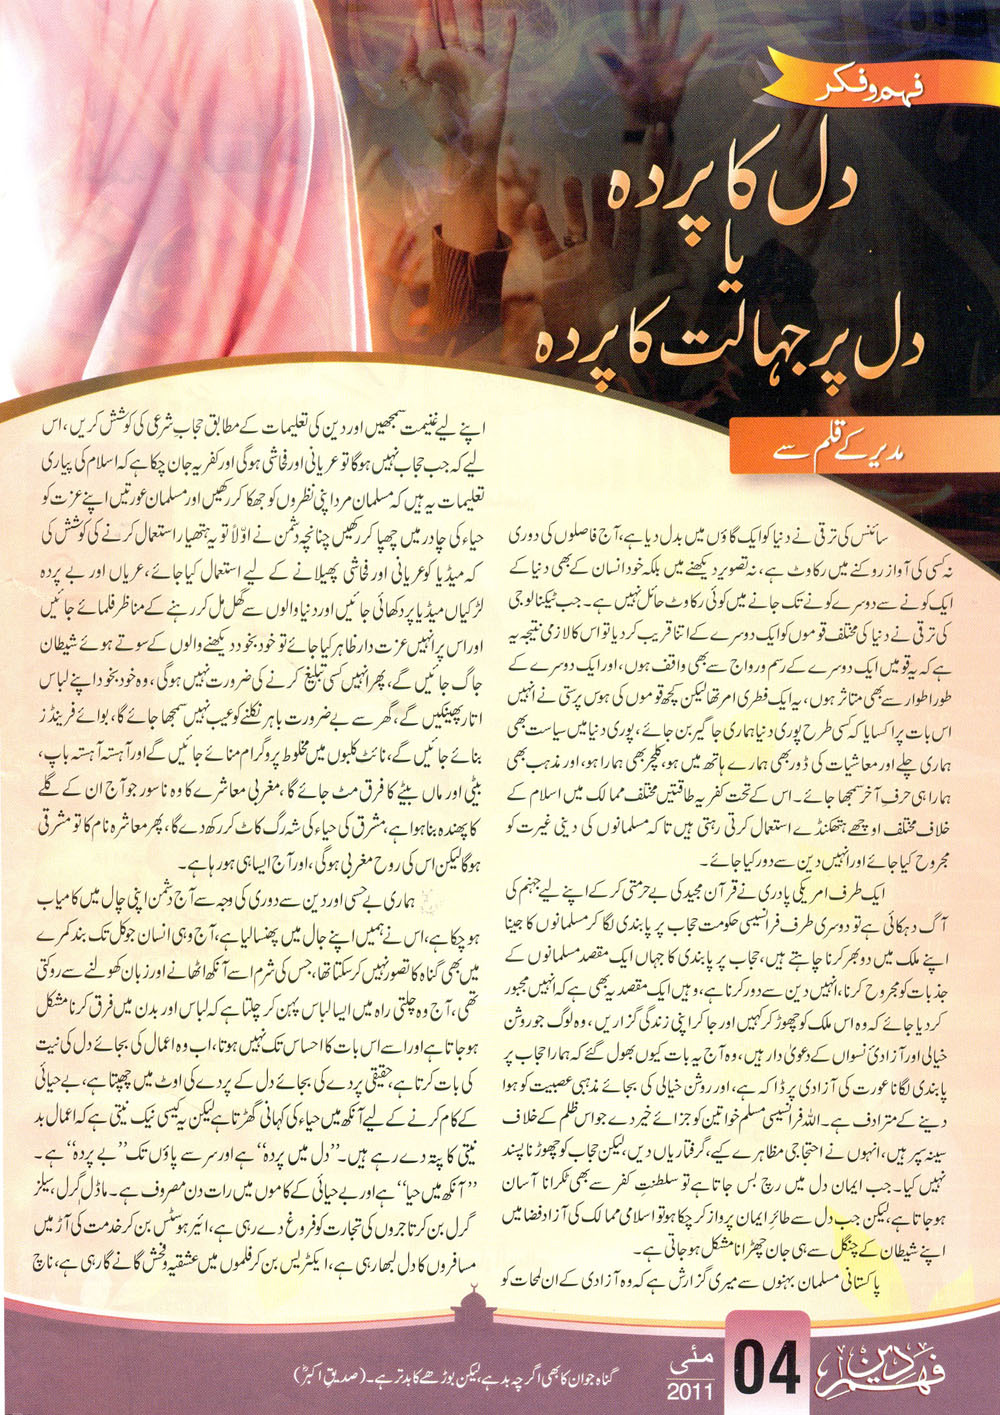 فہم و فکر
دل کا پردہ
یا
دل پر جہالت کا پردہ
مدیر کے قلم سے
سائنس کی ترقی نے دنیا کو ایک گاؤں میں بدل دیا ہے، آج فاصلوں کی دوری
نہ کسی کی آواز روکنے میں رکاوٹ ہے، نہ تصویر دیکھنے میں بلکہ خود انسان کے بھی دنیا کے
ایک کونے سے دوسرے کونے تک جانے میں کوئی رکاوٹ حائل نہیں ہے۔ جب ٹیکنالوجی
کی ترقی نے دنیا کی مختلف قوموں کو ایک دوسرے کے اتنا قریب کر دیا تو اس کا لازمی نتیجہ یہ
ہے کہ یہ قومیں ایک دوسرے کے رسم و رواج سے بھی واقف ہوں، اور ایک دوسرے کے
طور اطوار سے بھی متاثر ہوں، یہ ایک فطری امر تھا لیکن کچھ قوموں کی ہوس پرستی نے انہیں
اس بات پر اکسایا کہ کسی طرح پوری دنیا ہماری جاگیر بن جائے، پوری دنیا میں سیاست بھی
ہماری چلے اور معاشیات کی ڈور بھی ہمارے ہاتھ میں ہو، کلچر بھی ہمارا ہو، اور مذہب بھی
ہمارا ہی حرفِ آخر سمجھا جائے۔ اس کے تحت کفریہ طاقتیں مختلف ممالک میں اسلام کے
خلاف مختلف اوچھے ہتھکنڈے استعمال کرتی رہتی ہیں تاکہ مسلمانوں کی دینی غیرت کو
مجروح کیا جائے اور انہیں دین سے دور کیا جائے۔
ایک طرف امریکی پادری نے قرآن مجید کی بے حرمتی کر کے اپنے لیے جہنم کی
آگ دہکائی ہے تو دوسری طرف فرانسیسی حکومت حجاب پر پابندی لگا کر مسلمانوں کا جینا
اپنے ملک میں دوبھر کرنا چاہتے ہیں، حجاب پر پابندی کا جہاں ایک مقصد مسلمانوں کے
جذبات کو مجروح کرنا، انہیں دین سے دور کرنا ہے، وہیں ایک مقصد یہ بھی ہے کہ انہیں مجبور
کر دیا جائے کہ وہ اس ملک کو چھوڑ کر کہیں اور جا کر اپنی زندگی گزاریں، وہ لوگ جو روشن
خیالی اور آزادئ نسواں کے دعویٰ دار ہیں، وہ آج یہ بات کیوں بھول گئے کہ ہمارا حجاب پر
پابندی لگانا عورت کی آزادی پر ڈاکہ ہے، اور روشن خیالی کی بجائے مذہبی عصبیت کو ہوا
دینے کے مترادف ہے۔ اللہ فرانسیسی مسلم خواتین کو جزائے خیر دے جو اس ظلم کے خلاف
سینہ سپر ہیں، انہوں نے احتجاجی مظاہرے کیے، گرفتاریاں دیں، لیکن حجاب کو چھوڑنا پسند
نہیں کیا۔ جب ایمان دل میں رچ بس جاتا ہے تو سلطنتِ کفر سے بھی ٹکرانا آسان
ہو جاتا ہے، لیکن جب دل سے طائرِ ایمان پرواز کر چکا ہو تو اسلامی ممالک کی آزاد فضا میں
اپنے شیطان کے چنگل سے ہی جان چھڑانا مشکل ہو جاتی ہے۔
پاکستانی مسلمان بہنوں سے میری گزارش ہے کہ وہ آزادی کے ان لمحات کو
اپنے لیے غنیمت سمجھیں اور دین کی تعلیمات کے مطابق حجابِ شرعی کی کوشش کریں، اس
لیے کہ جب حجاب نہیں ہوگا تو عریانی اور فحاشی ہوگی اور کفر یہ جان چکا ہے کہ اسلام کی پیاری
تعلیمات یہ ہیں کہ مسلمان مرد اپنی نظروں کو جھکا کر رکھیں اور مسلمان عورتیں اپنے عزت کو
حیاء کی چادر میں چھپا کر رکھیں چنانچہ دشمن نے اوّلاً تو یہ ہتھیار استعمال کرنے کی کوشش کی
کہ میڈیا کو عریانی اور فحاشی پھیلانے کے لیے استعمال کیا جائے، عریاں اور بے پردہ
لڑکیاں میڈیا پر دکھائی جائیں اور دنیا والوں سے گھل مل کر رہنے کے مناظر فلمائے جائیں
اور اس پر انہیں عزت دار ظاہر کیا جائے تو خود بخود دیکھنے والوں کے سوتے ہوئے شیطان
جاگ جائیں گے، پھر انہیں کسی تبلیغ کرنے کی ضرورت نہیں ہوگی، وہ خود بخود اپنے لباس
اتار پھینکیں گے، گھر سے بے ضرورت باہر نکلنے کو عیب نہیں سمجھا جائے گا، بوائے فرینڈز
بنائے جائیں گے، نائٹ کلبوں میں مخلوط پروگرام منائے جائیں گے اور آہستہ آہستہ باپ،
بیٹی اور ماں بیٹے کا فرق مٹ جائے گا، مغربی معاشرے کا وہ ناسور جو آج ان کے گلے
کا پھندہ بنا ہوا ہے، مشرق کی حیاء کی شہ رگ کاٹ کر رکھ دے گا، پھر معاشرہ نام کا تو مشرقی
ہوگا لیکن اس کی روح مغربی ہوگی، اور آج ایسا ہی ہو رہا ہے۔
ہماری بے حسی اور دین سے دوری کی وجہ سے آج دشمن اپنی چال میں کامیاب
ہو چکا ہے، اس نے ہمیں اپنے جال میں پھنسا لیا ہے، آج وہی انسان جو کل تک بند کمرے
میں بھی گناہ کا تصور نہیں کر سکتا تھا، جس کی شرم اسے آنکھ اٹھانے اور زبان کھولنے سے روکتی
تھی، آج وہ چلتی راہ میں ایسا لباس پہن کر چلتا ہے کہ لباس اور بدن میں فرق کرنا مشکل
ہو جاتا ہے اور اسے اس بات کا احساس تک نہیں ہوتا، اب وہ اعمال کی بجائے دل کی نیت
کی بات کرتا ہے، حقیقی پردے کی بجائے دل کے پردے کی اوٹ میں چھپتا ہے، بے حیائی
کے کام کرنے کے لیے آنکھ میں حیاء کی کہانی گھڑتا ہے لیکن یہ کیسی نیک نیتی ہے کہ اعمال بد
نیتی کا پتہ دے رہے ہیں۔ ”دل میں پردہ“ ہے اور سر سے پاؤں تک ”بے پردہ“ ہے۔
”آنکھ میں حیا“ ہے اور بے حیائی کے کاموں میں رات دن مصروف ہے۔ ماڈل گرل، سیلز
گرل بن کر تاجروں کی تجارت کو فروغ دے رہی ہے، ائیر ہوسٹس بن کر خدمت کی آڑ میں
مسافروں کا دل لبھا رہی ہے، ایکٹریس بن کر فلموں میں عشقیہ و فحش گانے گا رہی ہے، ناچ
فہم دین
04
مئی
2011
گناہ جوان کا بھی اگرچہ بد ہے، لیکن بوڑھے کا بدتر ہے۔ (صدیق اکبرؓ)